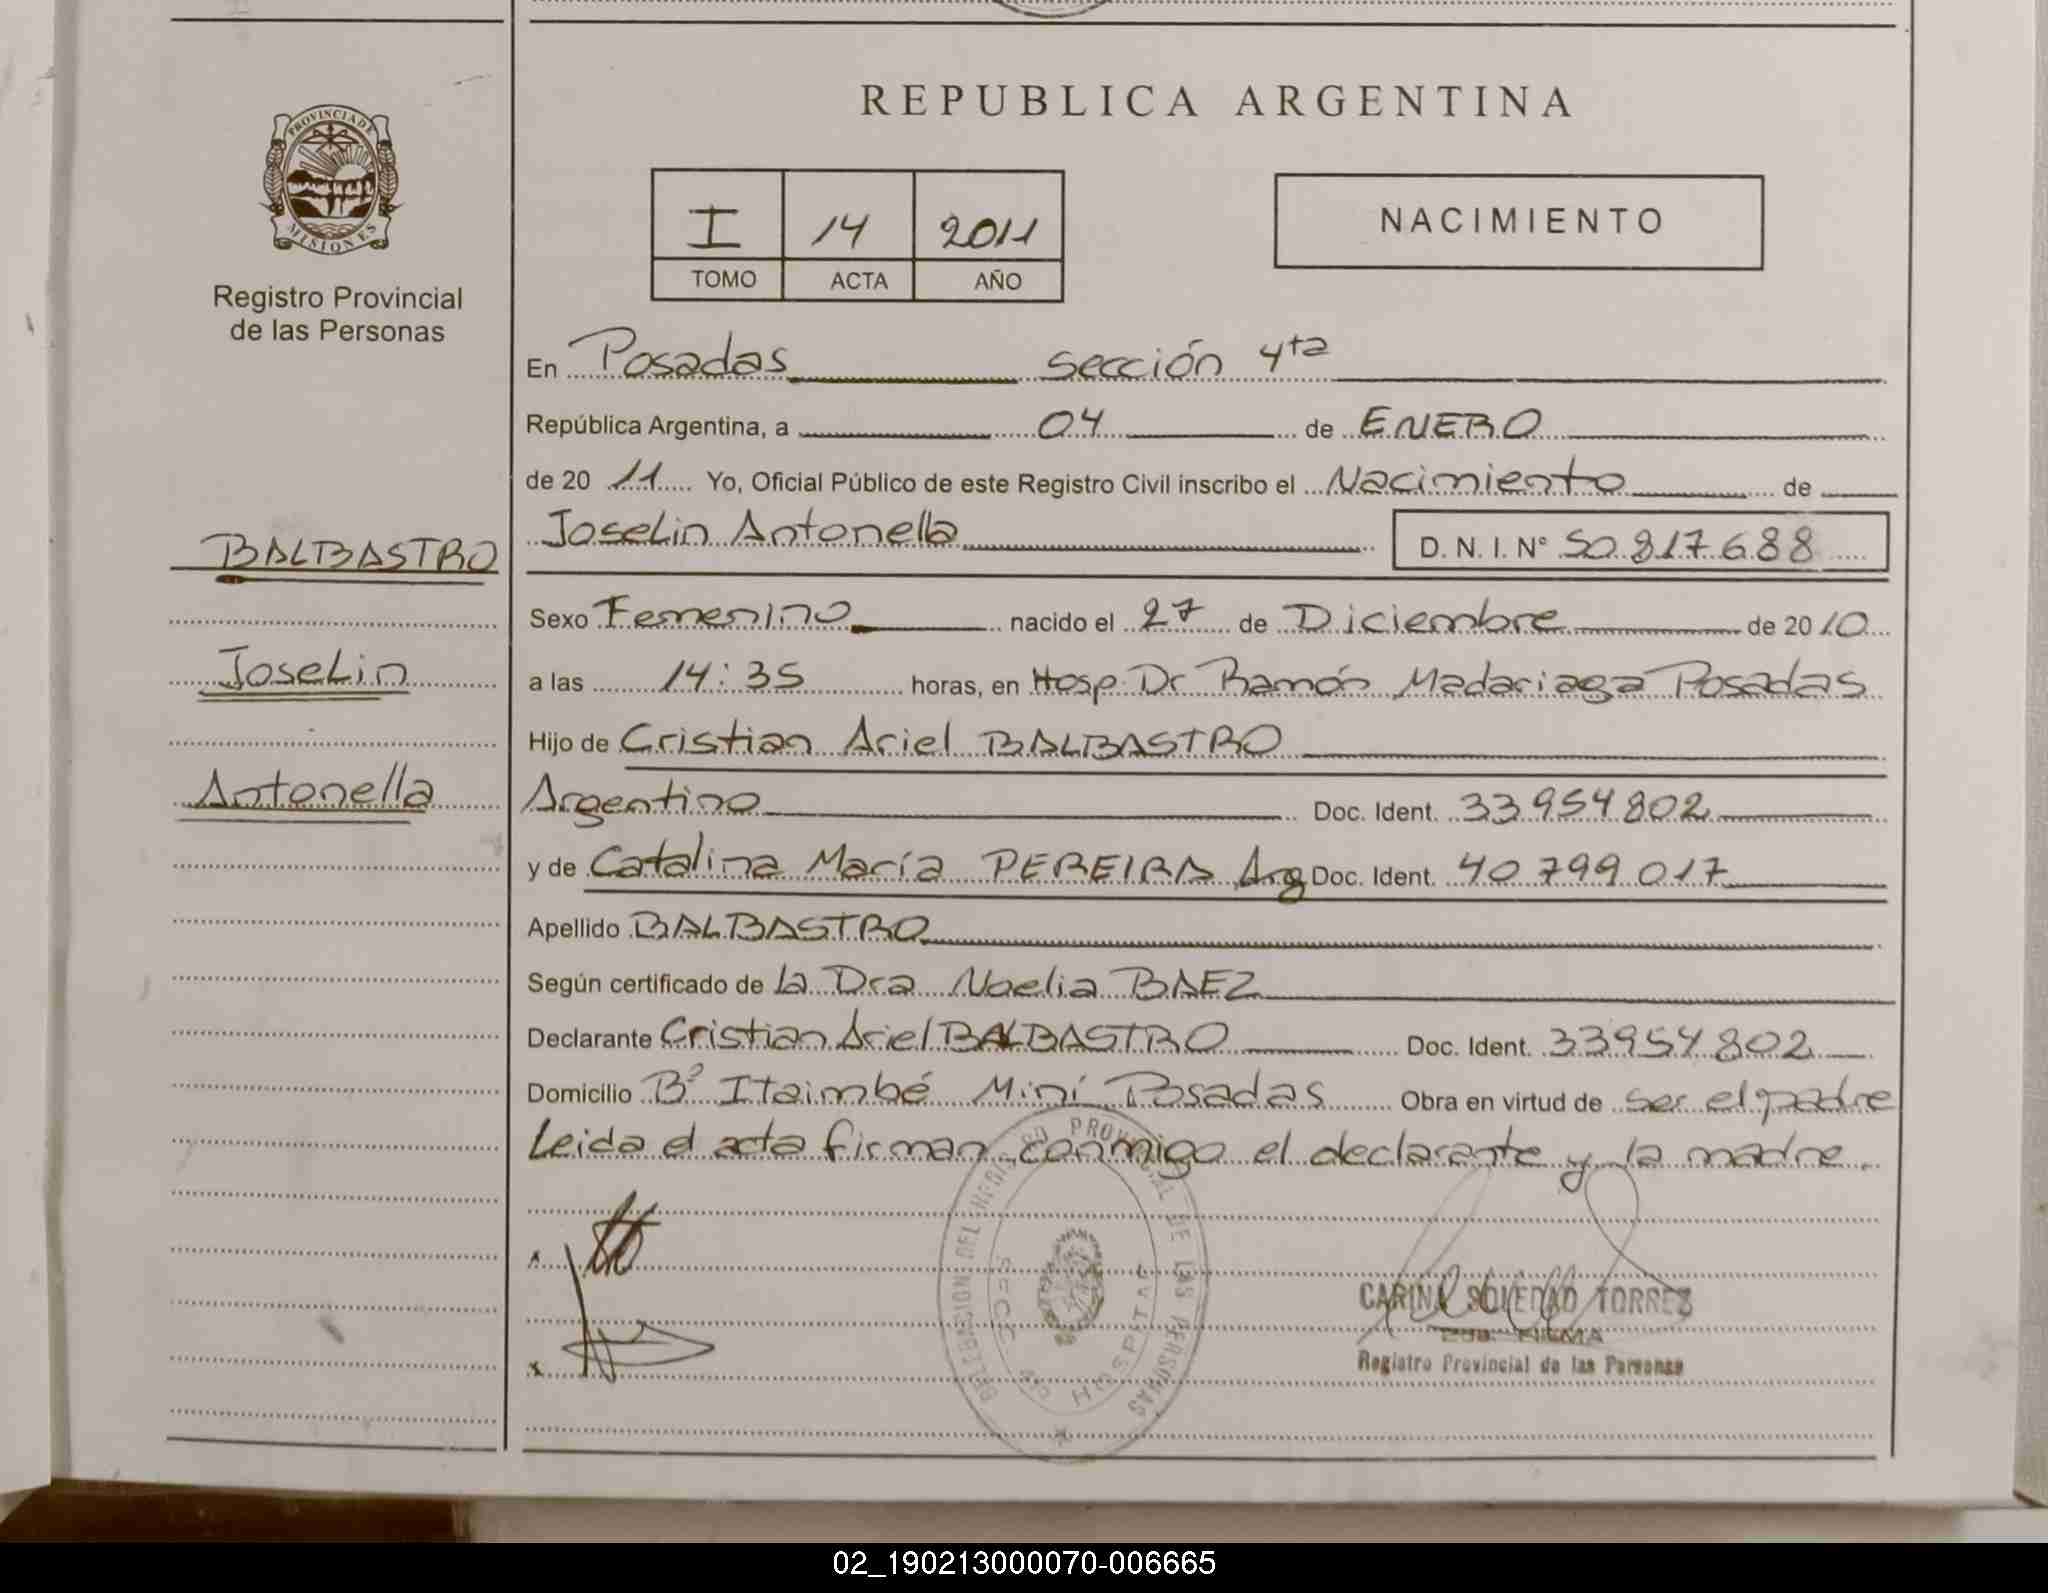 REPUBLICA ARGENTINA
PROVINCIA DE
MISIONES
Registro Provincial
de las Personas
I 14 2011
TOMO ACTA AÑO
NACIMIENTO
En Posadas sección 4ta
República Argentina, a 04 de ENERO
de 2011 Yo, Oficial Público de este Registro Civil inscribo el Nacimiento de
BALBASTRO
Joselin
Antonella
Joselin Antonella D. N. I. N° 50.817.688
Sexo Femenino nacido el 27 de Diciembre de 2010
a las 14:35 horas, en Hosp. Dr Ramón Madariaga Posadas
Hijo de Cristian Ariel BALBASTRO
Argentino Doc. Ident. 33954802
y de Catalina María PEREIRA Arg Doc. Ident. 40799017
Apellido BALBASTRO
Según certificado de la Dra Noelia BAEZ
Declarante Cristian Ariel BALBASTRO Doc. Ident. 33954802
Domicilio B° Itaimbé Miní Posadas Obra en virtud de ser el padre
Leida el acta firman conmigo el declarante y la madre.
DELEGACION DEL REGISTRO PROVINCIAL DE LAS PERSONAS
HOSPITAL
CARINA SOLEDAD TORREZ
FIRMA
Registro Provincial de las Personas
02_190213000070-006665